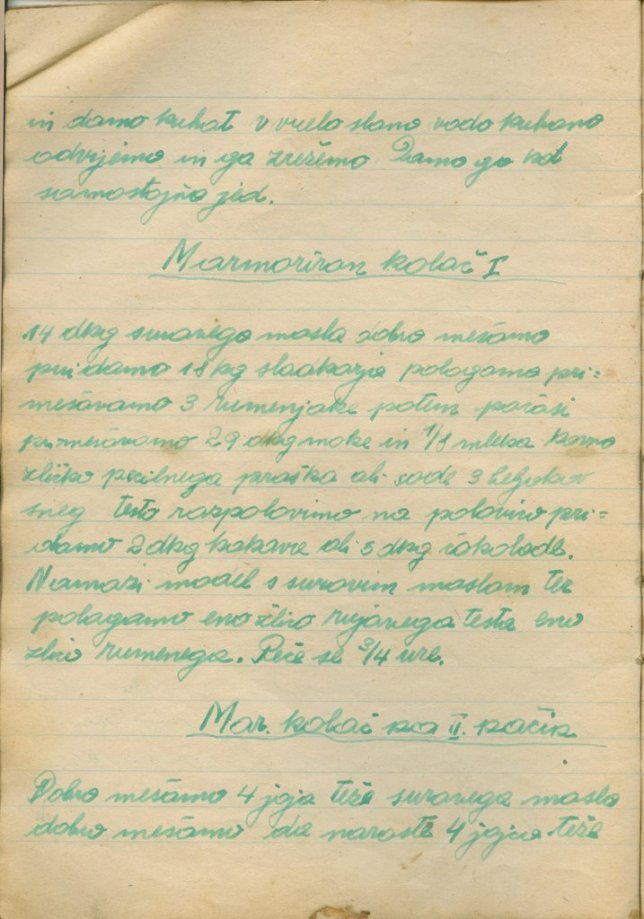 in damo kuhat v vrelo slano vodo kuhano
odvijemo in ga zrežemo Damo go kot
samostojno jed.
Marmoriran kolač I
14 dkg surovega masla dobro mešamo
pri damo 18 kg sladkorja polagoma pri=
mešavamo 3 rumenjake potem počasi
primešavamo 29 dkg moke in 1/8 mleka kavno
žličko pecilnega praška ali sode 3 beljakov
sneg testo razpolovimo na polovico pri=
damo 2 dkg kakava ali 5 dkg čokolade.
Namaži model s surovim maslom ter
polagamo eno žlico rujavega testa eno
žlico rumenega. Peče se 3/4 ure.
Mar. kolač na II. način
Dobro mešamo 4 jajca teže surovega masla
dobro mešamo da naraste 4 jajca teže